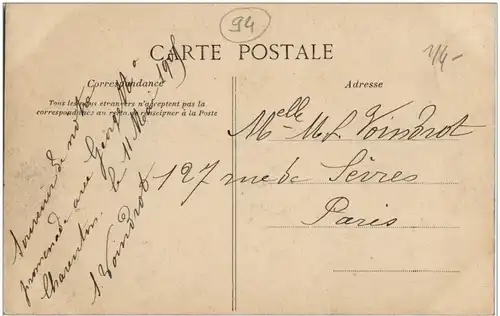 94
CARTE POSTALE
1/4-
Correspondance
Tous les pays étrangers n'acceptent pas la
correspondance au recto. Se renseigner à la Poste
Adresse
Souvenir de notre
promenade avec Georgette à
Charenton. le 11 Mai 1905
S. Voindrot
Melle M L Voindrot
127 rue de Sèvres
Paris